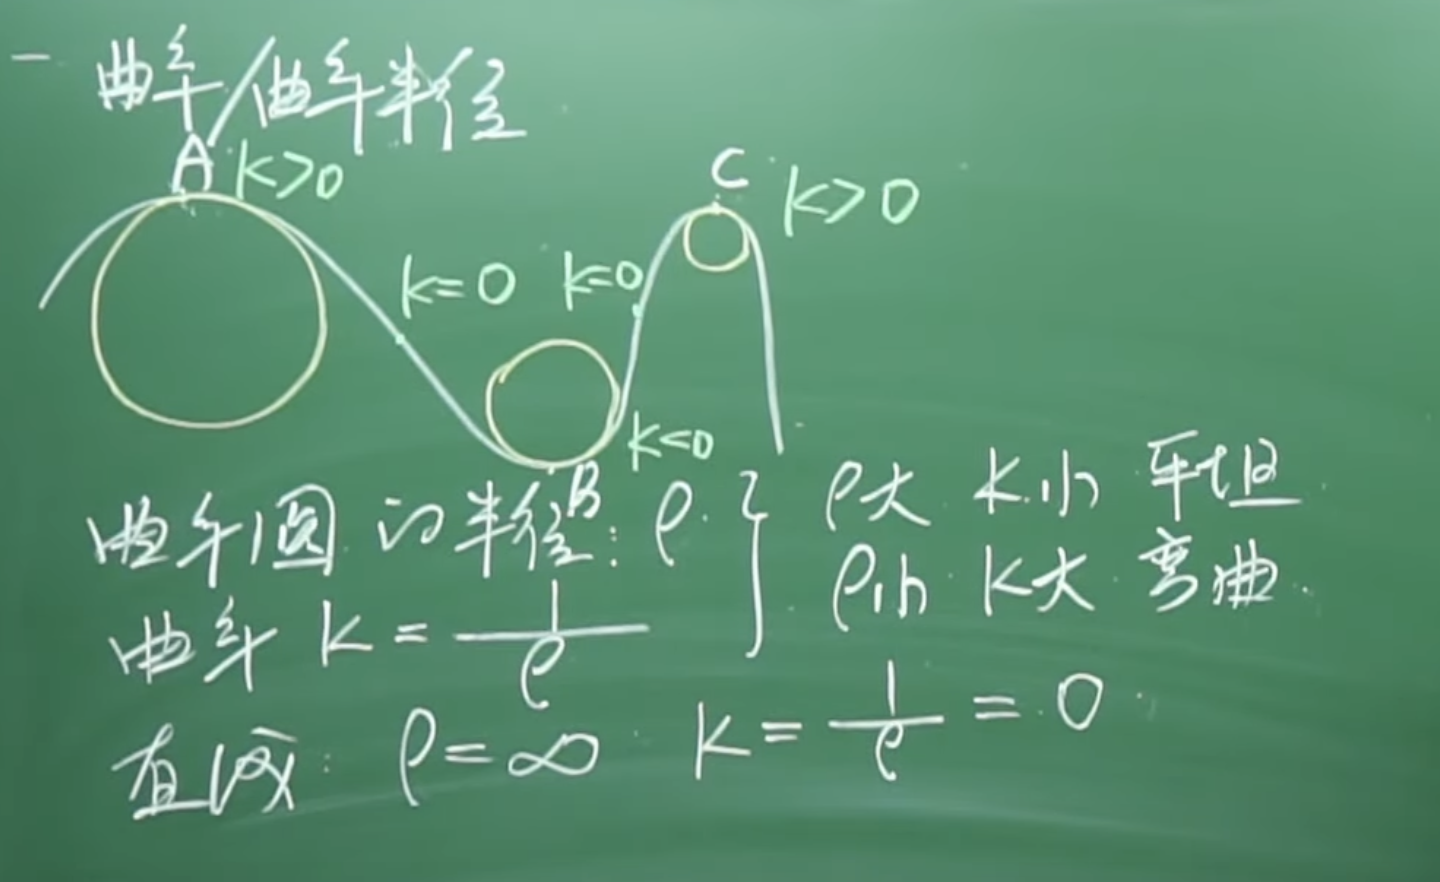 一 曲率/曲率半径
A K>0
C K>0
K=0 K=0
K<0
B
曲率圆的半径:ρ. } ρ大 K小 平坦
曲率 K = 1/ρ ρ小 K大 弯曲
直线: ρ=∞ K = 1/ρ = 0